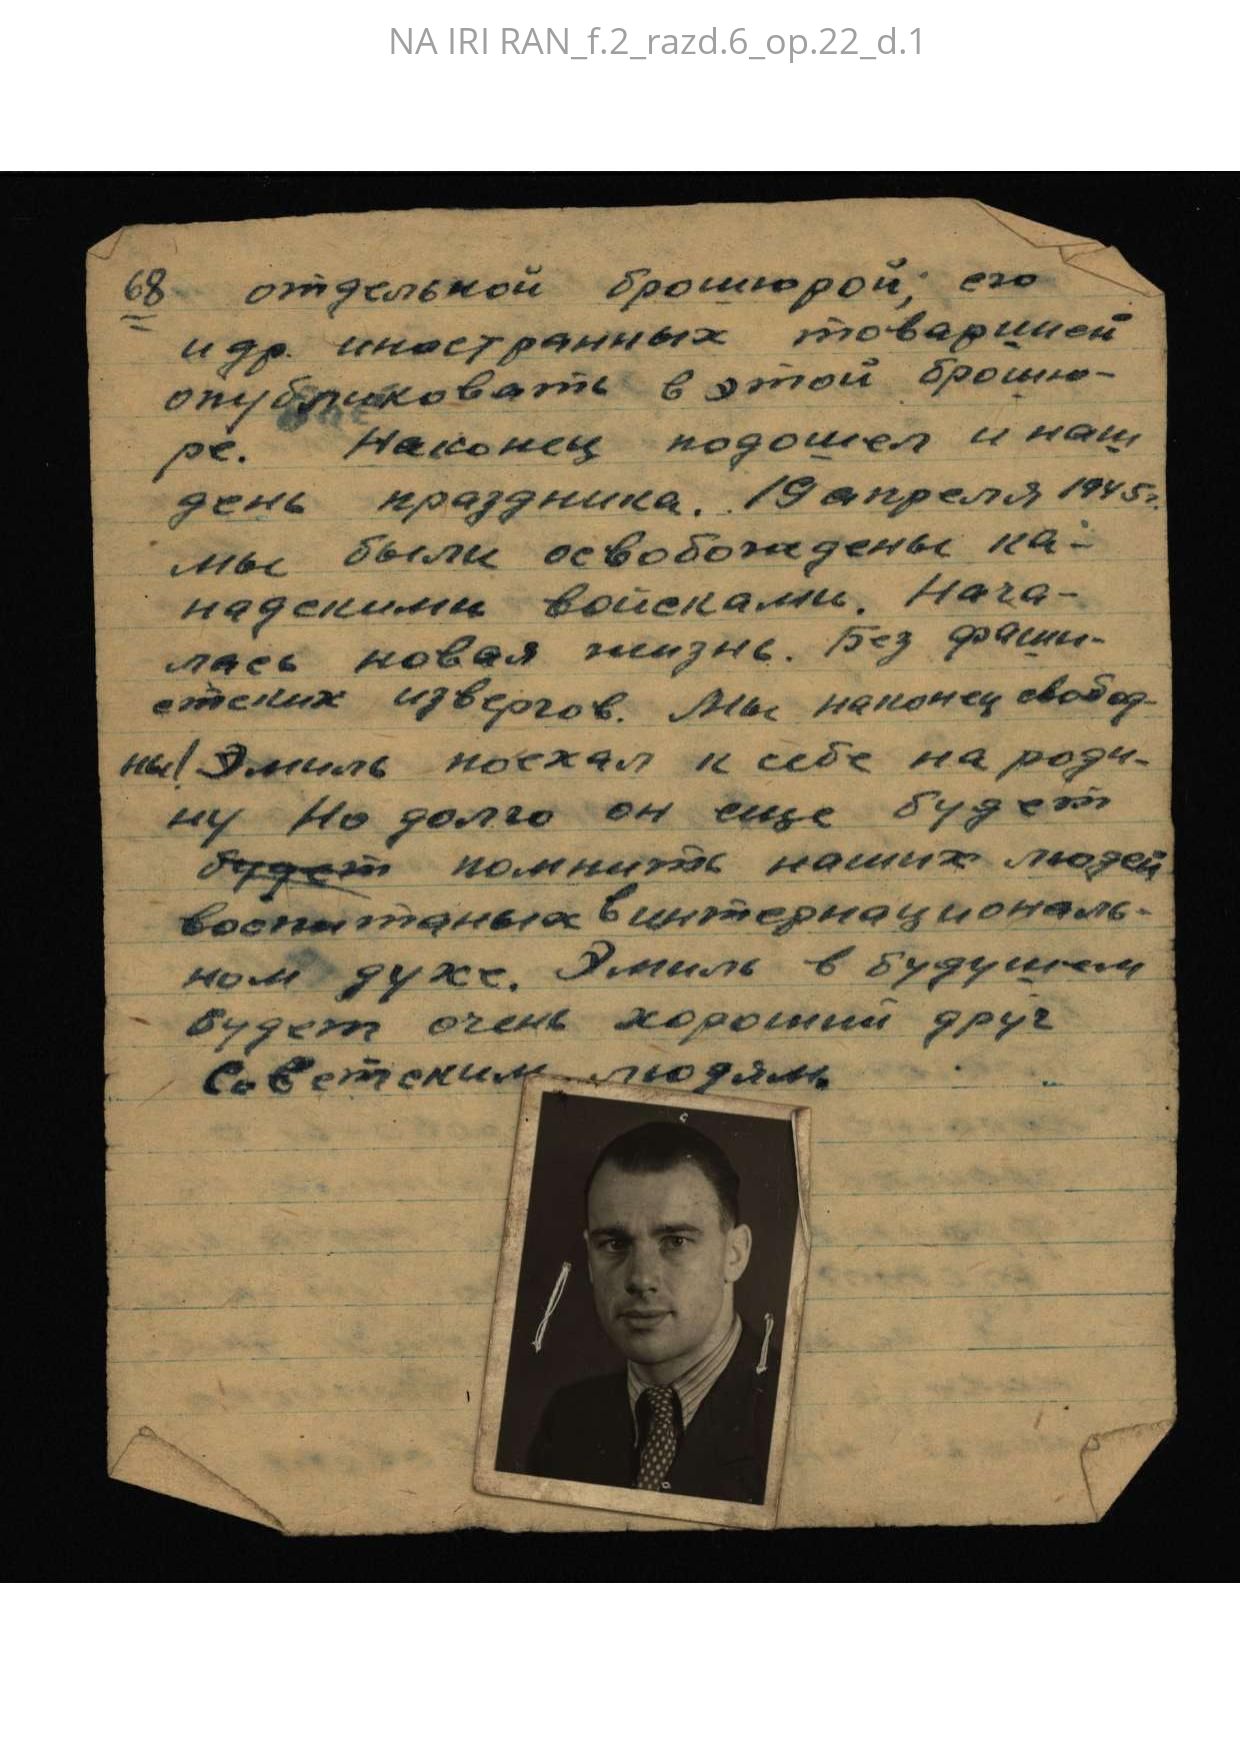 NA IRI RAN_f.2_razd.6_op.22_d.1
68 отдельной брошюрой; его
и др. иностранных товарищей
опубликовать в этой брошю-
ре. Наконец подошел и наш
день праздника. 19 апреля 1945г.
мы были освобождены ка-
надскими войсками. Нача-
лась новая жизнь. Без фаши-
стских извергов. Мы наконец свобод-
ны! Эмиль поехал к себе на роди-
ну Но долго он еще будет
будет помнить наших людей
воспитаных в интернациональ-
ном духе. Эмиль в будущем
будет очень хороший друг
Советским людям.